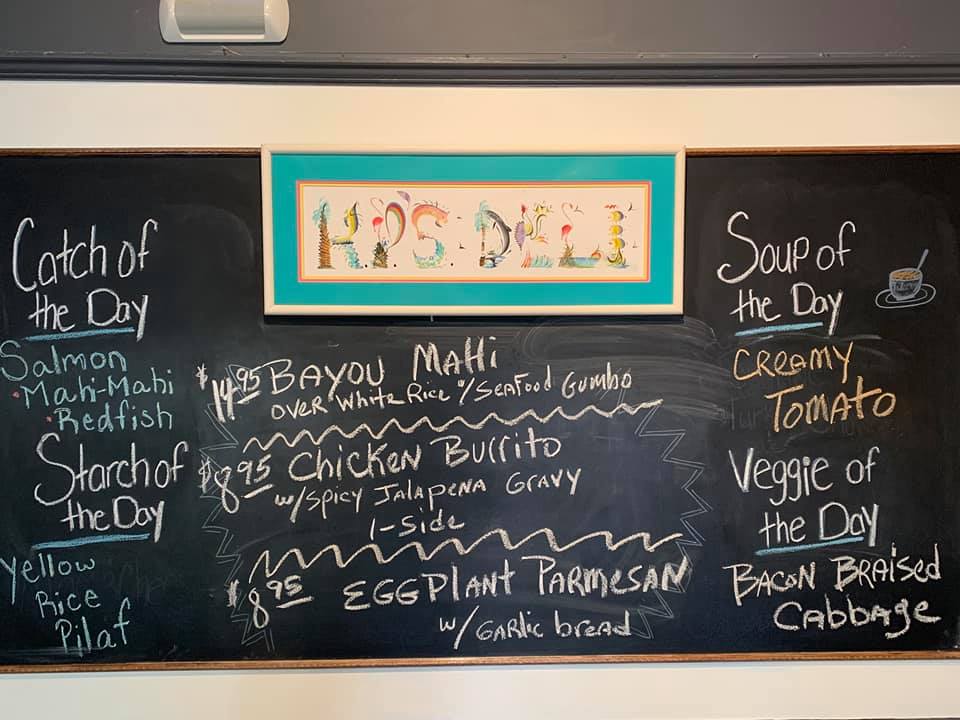 K.O'S. DELI
Catch of
the Day
Salmon
Mahi-Mahi
Redfish
Starch of
the Day
Yellow
Rice
Pilaf
$14.95 BAYOU MAHi
OVER White Rice w/SeaFood Gumbo
$8.95 Chicken Burrito
w/Spicy Jalapena Gravy
1-Side
$8.95 EGGPlant Parmesan
w/ Garlic bread
Soup of
the Day
Creamy
Tomato
Veggie of
the Day
Bacon Braised
Cabbage